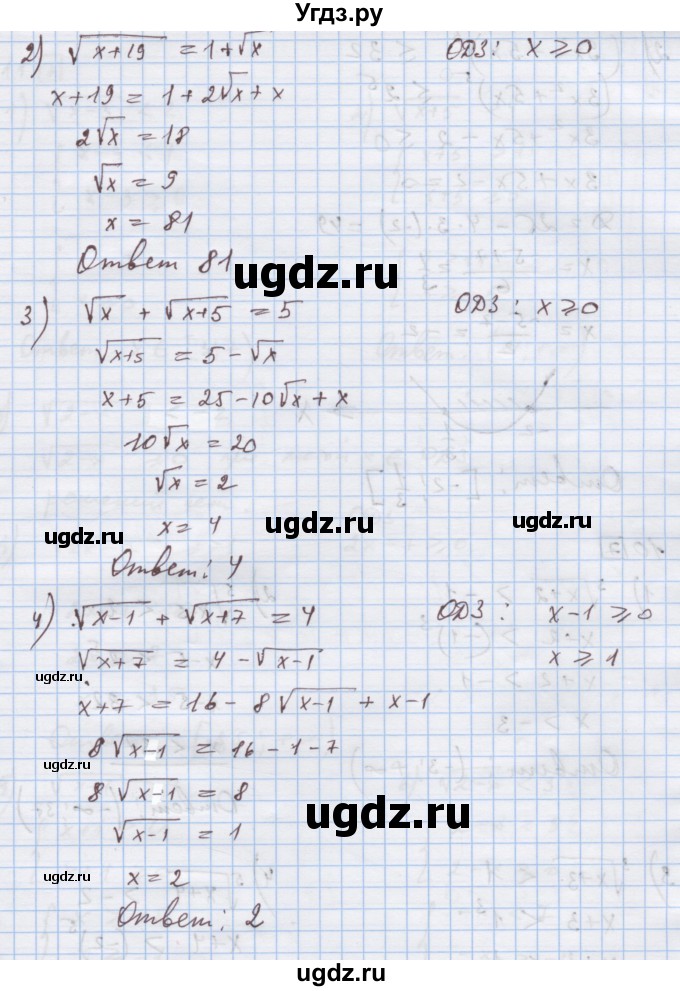 Угдз.ру
2) √(x+19) = 1+√x ОДЗ: x ≥ 0
x+19 = 1+2√x+x
2√x = 18
√x = 9
x = 81
Ответ 81
ugdz.ru
3) √x + √(x+5) = 5 ОДЗ: x ≥ 0
√(x+5) = 5-√x
x+5 = 25-10√x+x
10√x = 20
√x = 2
x = 4
ugdz.ru ugdz.ru ugdz.ru
Ответ: 4
4) √(x-1) + √(x+7) = 4 ОДЗ: x-1 ≥ 0
√(x+7) = 4-√(x-1) x ≥ 1
ugdz.ru
x+7 = 16-8√(x-1) + x-1
8√(x-1) = 16-1-7
ugdz.ru
8√(x-1) = 8
ugdz.ru
√(x-1) = 1
x = 2
ugdz.ru
Ответ: 2
ugdz.ru